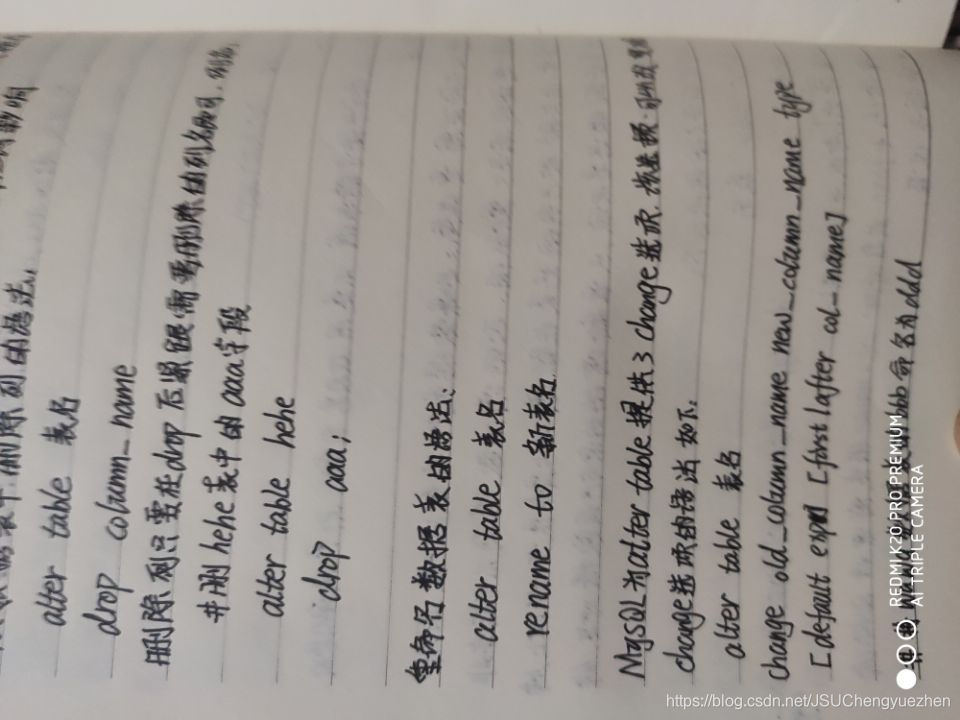 影响
数据表中删除列的语法:
alter table 表名
drop column_name
删除列只要在drop后紧跟需要删除的列名即可.
#删hehe表中的aaa字段
alter table hehe
drop aaa;
重命名数据表的语法:
alter table 表名
rename to 新表名
MySQL为alter table提供了change选项.
change选项的语法如下:
alter table 表名
change old_column_name new_column_name type
[default expr] [first|after col_name]
bbb命名为ddd
REDMI K20 PRO PREMIUM
AI TRIPLE CAMERA
https://blog.csdn.net/JSUChengyuezhen